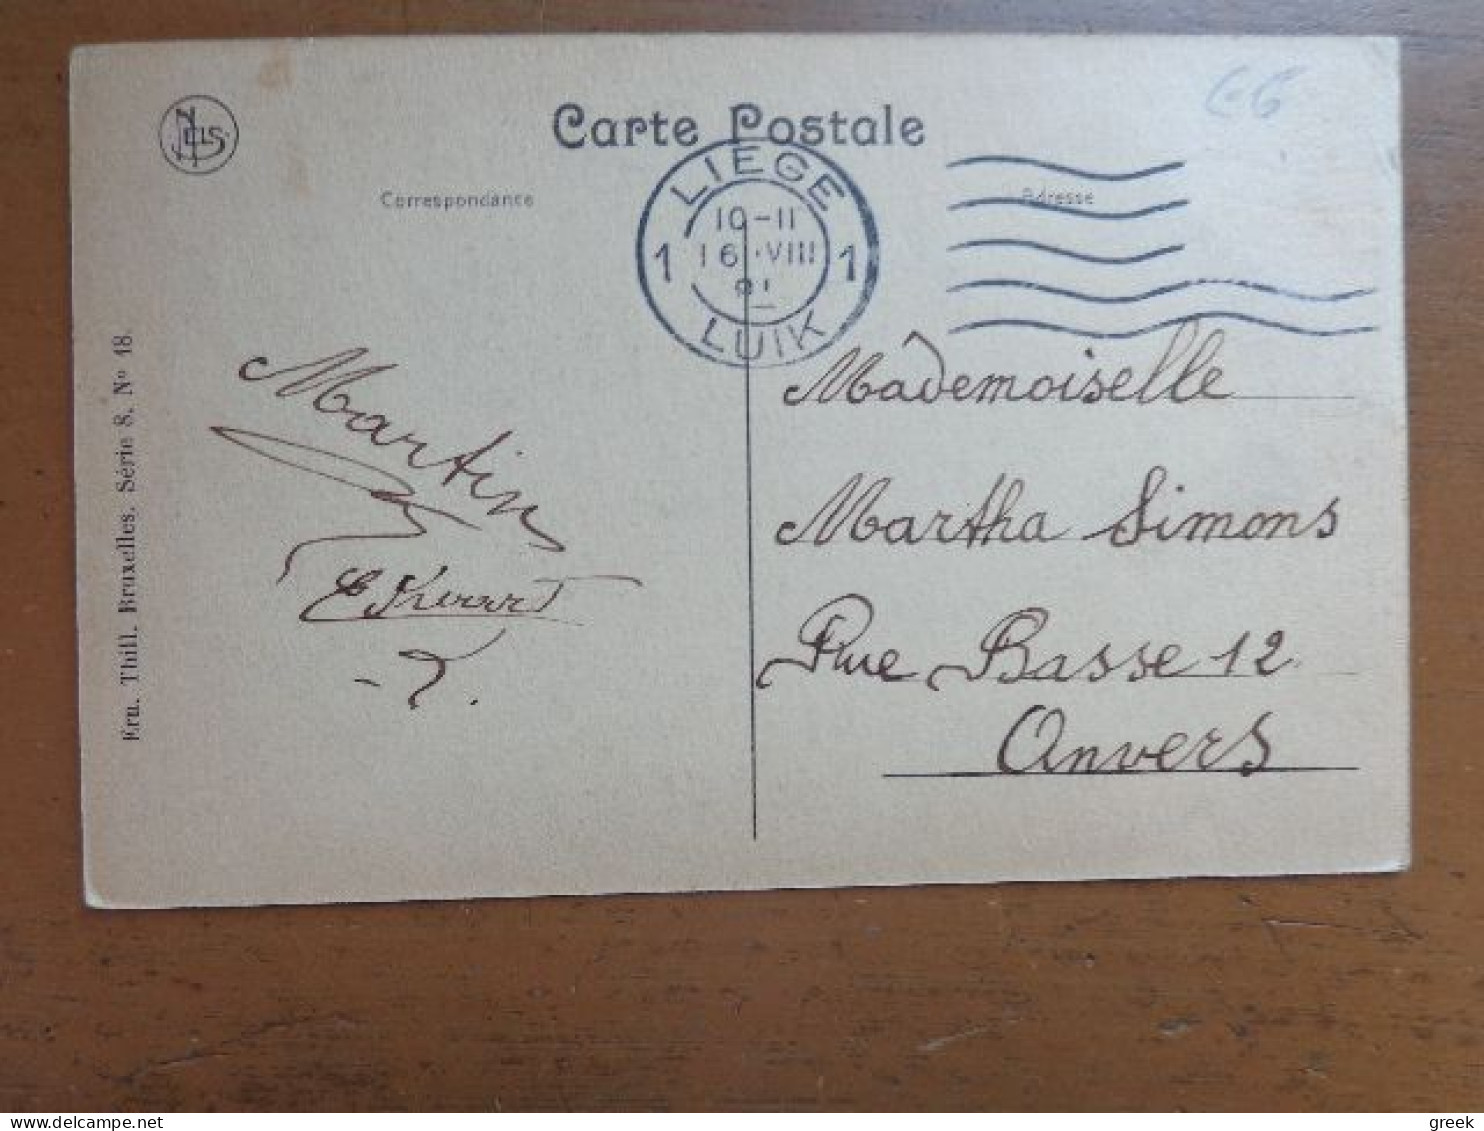 NELS
Carte Postale
66
Correspondance
Adresse
LIEGE
10-11
1 16 VIII 1
LUIK
Mademoiselle
Martha Simons
Rue Basse 12
Anvers
Martin
Ern. Thill. Bruxelles. Série 8. Nº 18
greek